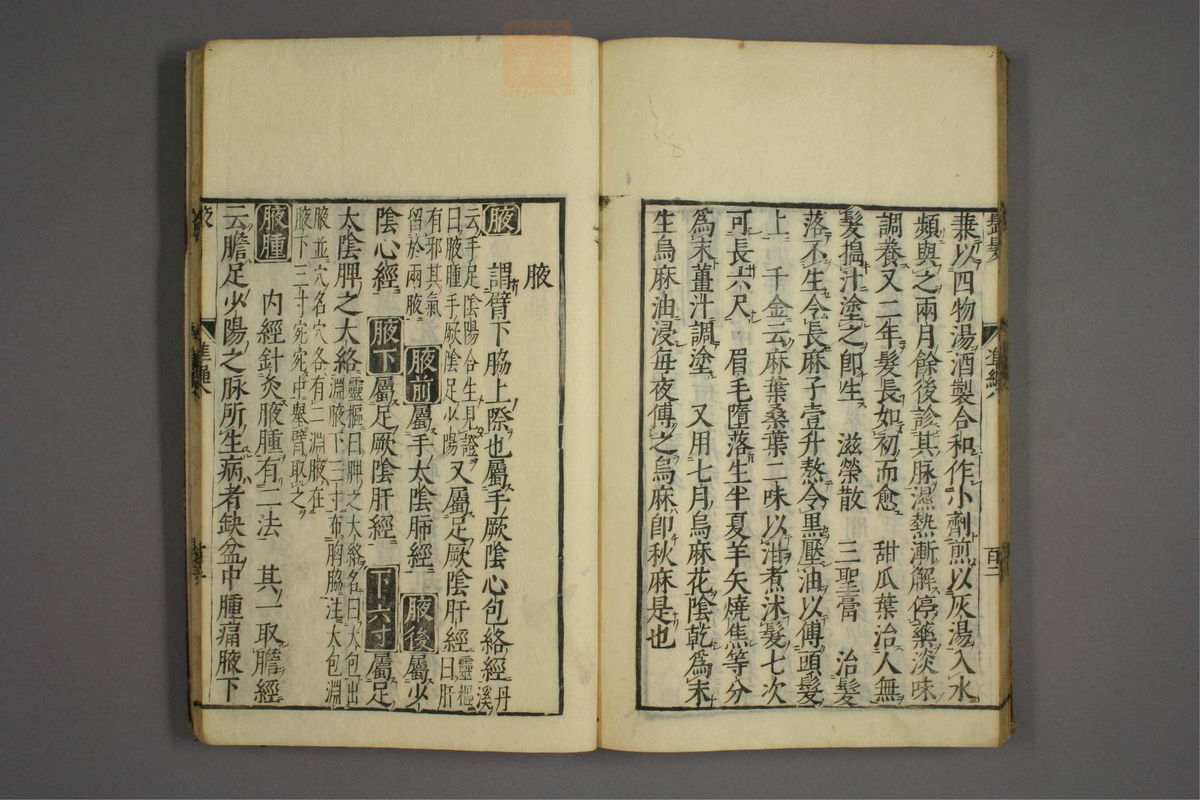 兼以四物湯酒製合和作小劑煎以灰湯入水
頻與之兩月餘後診其脉濕熱漸解停藥淡味
調養又二年髮長如初而愈　甜瓜葉治人無
髮搗汁塗之即生　滋榮散　三聖膏　治髮
落不生令長麻子壹升熬令黒壓油以傅頭髮
上　千金云麻葉桑葉二味以泔煮沐髮七次
可長六尺　眉毛墮落生半夏羊矢燒焦等分
爲末薑汁調塗　又用七月烏麻花陰乾爲末
生烏麻油浸每夜傅之烏麻即秋麻是也
腋
腋　謂臂下脇上際也屬手厥陰心包絡經丹溪
云手足陰陽合生見證曰腋腫手厥陰足少陽又屬足厥陰肝經靈樞曰肝
有邪其氣留於兩腋　腋前屬手太陰肺經　腋後屬少
陰心經　腋下屬足厥陰肝經　下六寸屬足
太陰脾之大絡靈樞曰脾之大絡名曰大包出淵腋下三寸布胸脇注大包淵
腋並穴名穴各有二淵腋在腋下三寸宛宛中舉臂取之
腋腫　内經針灸腋腫有二法　其一取膽經
云膽足少陽之脉所生病者缺盆中腫痛腋下